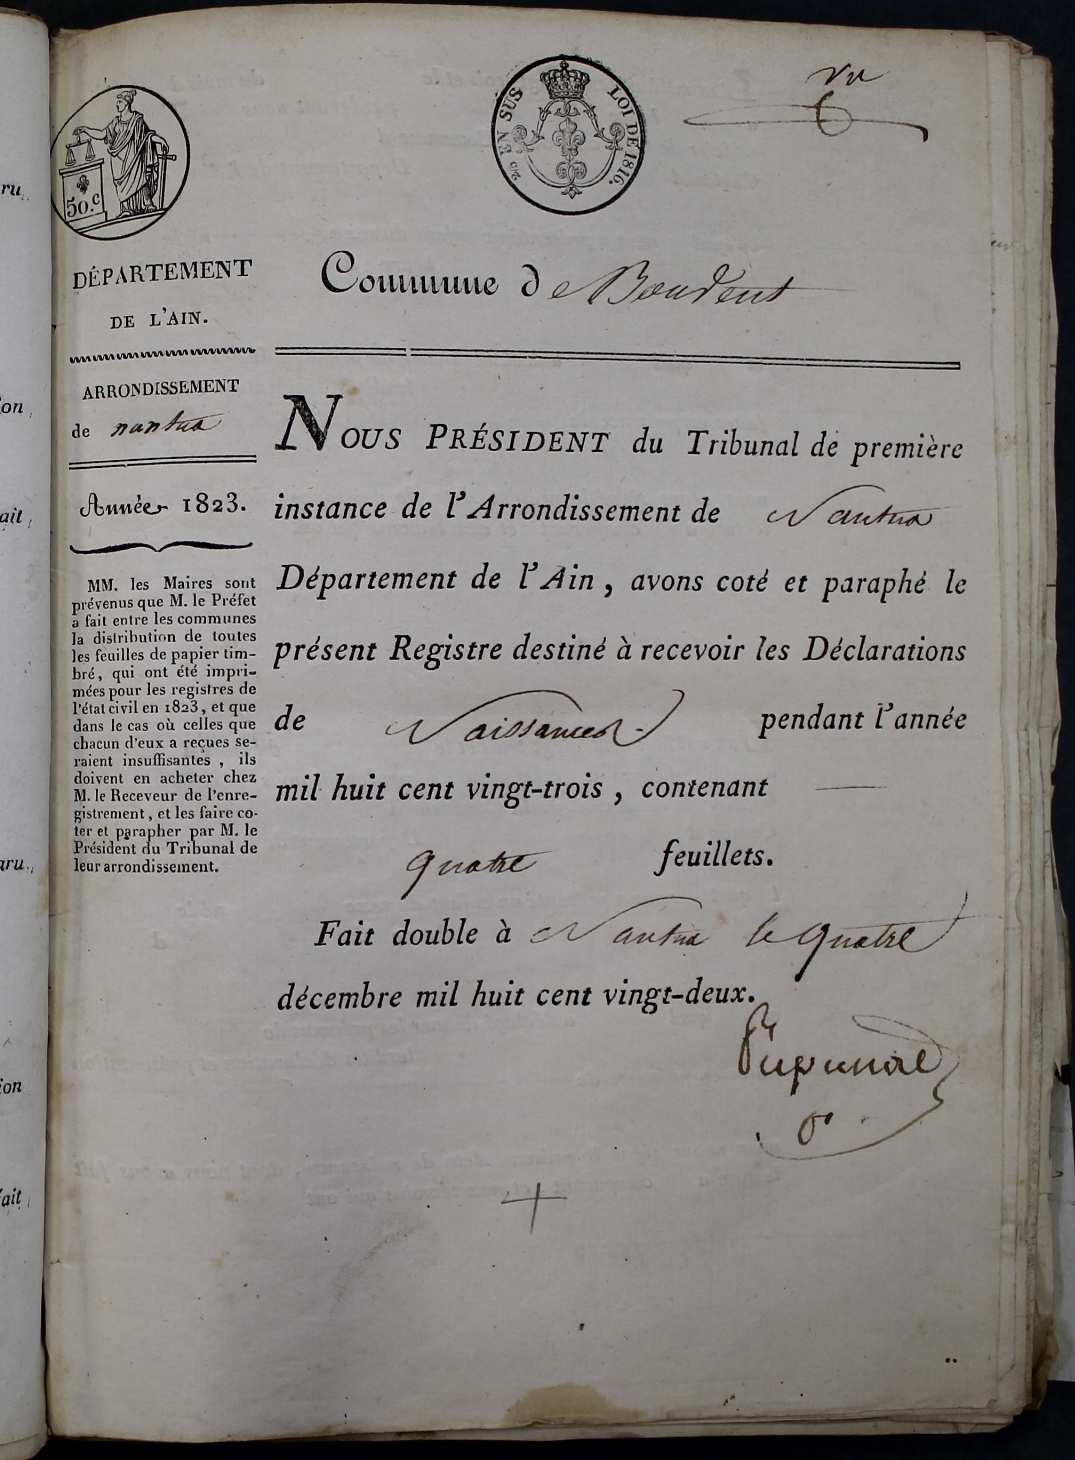 50.c
2/0 EN SUS LOI DE 1816.
vu
DÉPARTEMENT
DE L'AIN.
ARRONDISSEMENT
de nantua
Année 1823.
MM. les Maires sont
prévenus que M. le Préfet
a fait entre les communes
la distribution de toutes
les feuilles de papier tim-
bré, qui ont été impri-
mées pour les registres de
l'état civil en 1823, et que
dans le cas où celles que
chacun d'eux a reçues se-
raient insuffisantes, ils
doivent en acheter chez
M. le Receveur de l'enre-
gistrement, et les faire co-
ter et parapher par M. le
Président du Tribunal de
leur arrondissement.
Commune de
NOUS PRÉSIDENT du Tribunal de première
instance de l'Arrondissement de Nantua
Département de l'Ain, avons coté et paraphé le
présent Registre destiné à recevoir les Déclarations
de Naissances pendant l'année
mil huit cent vingt-trois, contenant
quatre feuillets.
Fait double à Nantua le quatre
décembre mil huit cent vingt-deux.